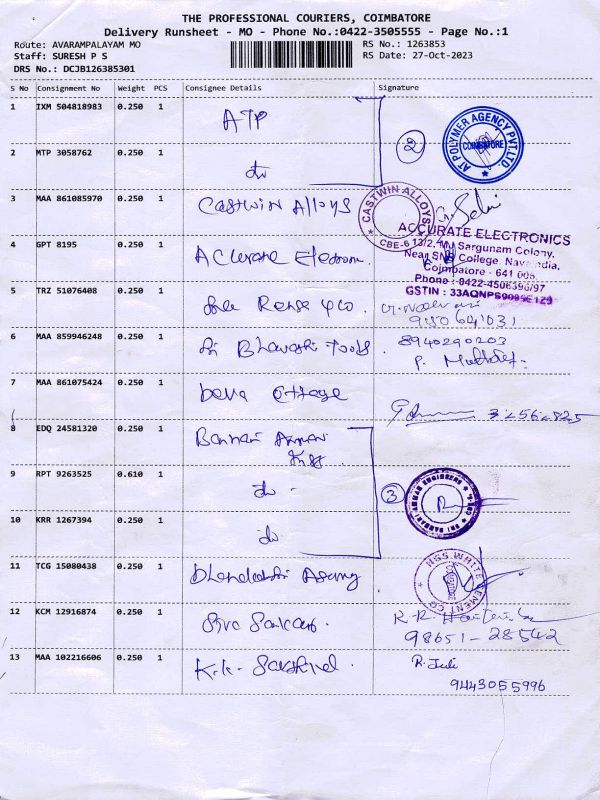 THE PROFESSIONAL COURIERS, COIMBATORE
Delivery Runsheet - MO - Phone No.:0422-3505555 - Page No.:1
Route: AVARAMPALAYAM MO
Staff: SURESH P S
DRS No.: DCJB126385301
RS No.: 1263853
RS Date: 27-Oct-2023
S No Consignment No Weight PCS Consignee Details Signature
1 IXM 504818983 0.250 1 ATP
2
AT POLYMER AGENCY PVT.LTD.
COIMBATORE
2 MTP 3058762 0.250 1
3 MAA 861085970 0.250 1 Castwin Alloys
CASTWIN ALLOYS
CBE-6
4 GPT 8195 0.250 1 Accurate Electron
ACCURATE ELECTRONICS
13/2, Sargunam Colony,
Near SNR College, Navaindia,
Coimbatore - 641 006.
Phone : 0422-4506396/97
GSTIN : 33AQNPS9095E1Z9
5 TRZ 51076408 0.250 1
6 MAA 859946248 0.250 1 Sri Bhavani Tools
8940290203
7 MAA 861075424 0.250 1 Cottage
8 EDQ 24581320 0.250 1 Bannari Amman
9 RPT 9263525 0.610 1
3
SRI BANNARI AMMAN ENGINEERS
10 KRR 1267394 0.250 1
11 TCG 15080438 0.250 1
12 KCM 12916874 0.250 1 Siva Sankar
98651-28542
13 MAA 102216606 0.250 1 K.K.
R. Juli
9443055996